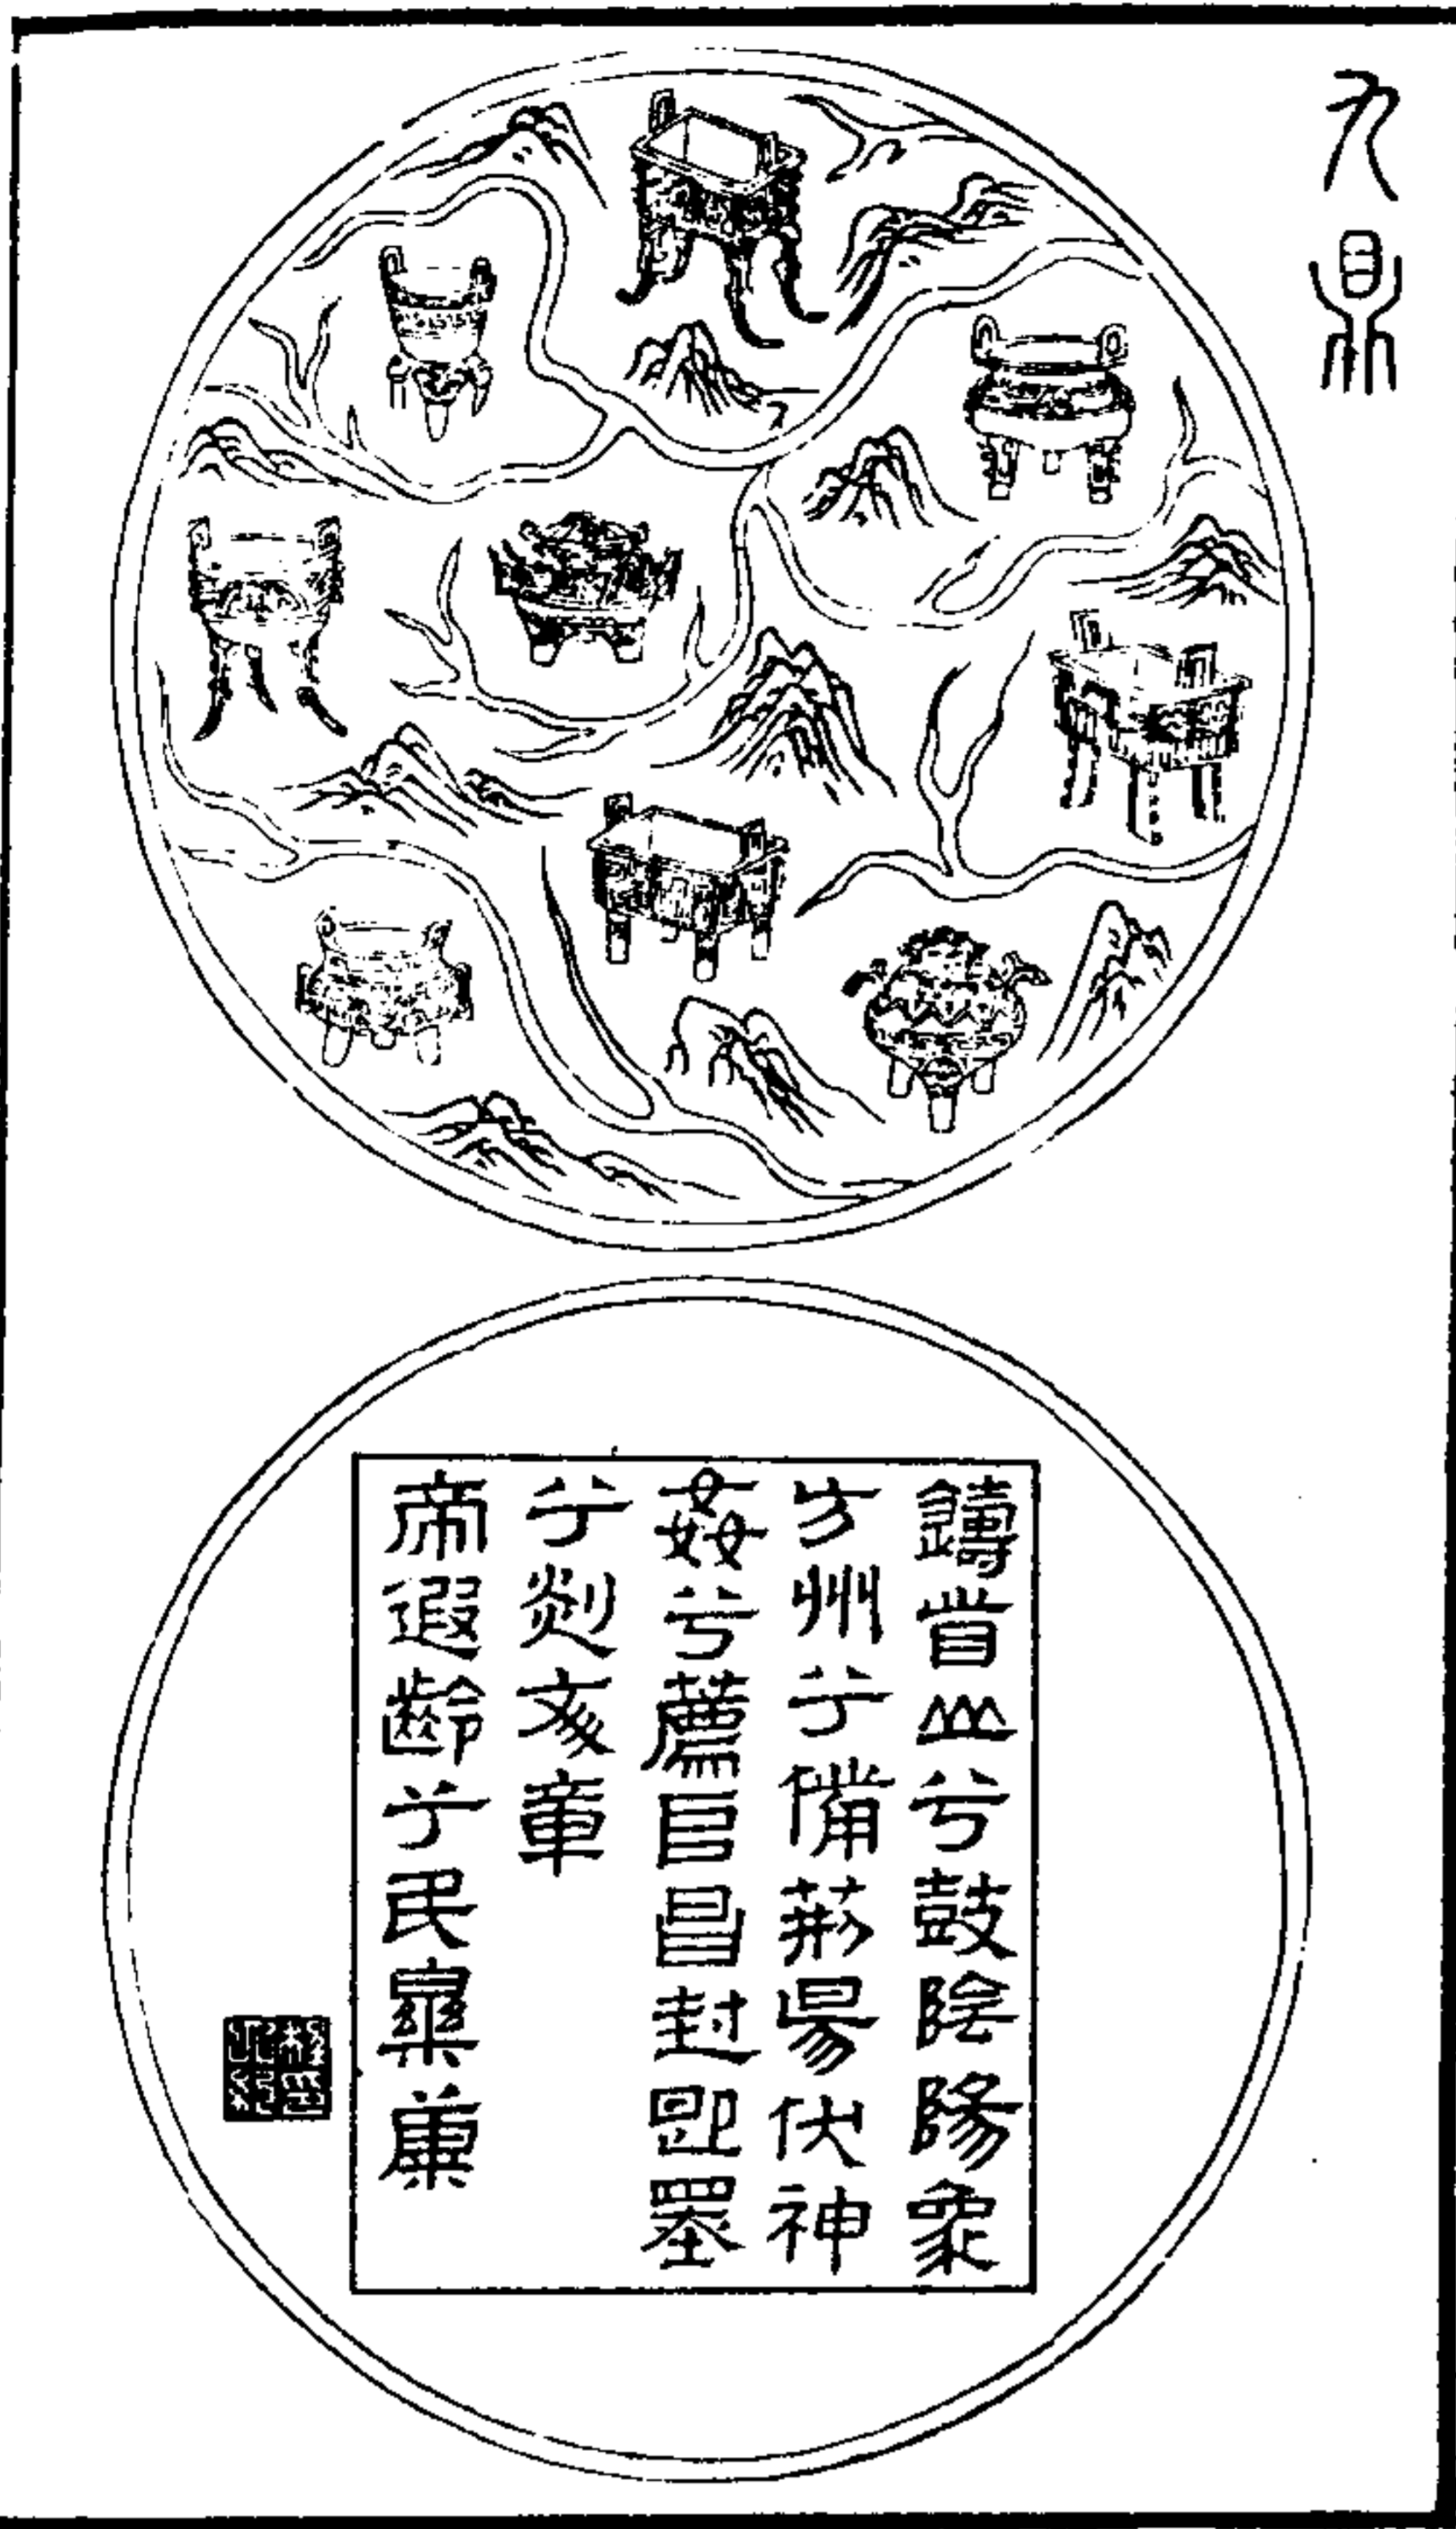 九鼎
鑄首山兮鼓陰陽象
方州兮備荊昜伏神
姦兮薦吕昌封即墨
兮剡文章
帝遐齡兮民樂康